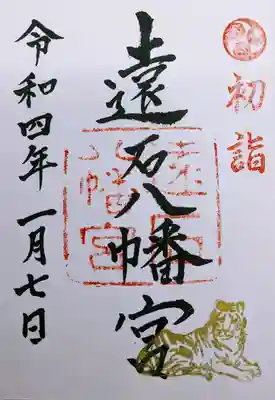 初詣
遠石八幡宮
遠石八幡宮
令和四年 一月七日